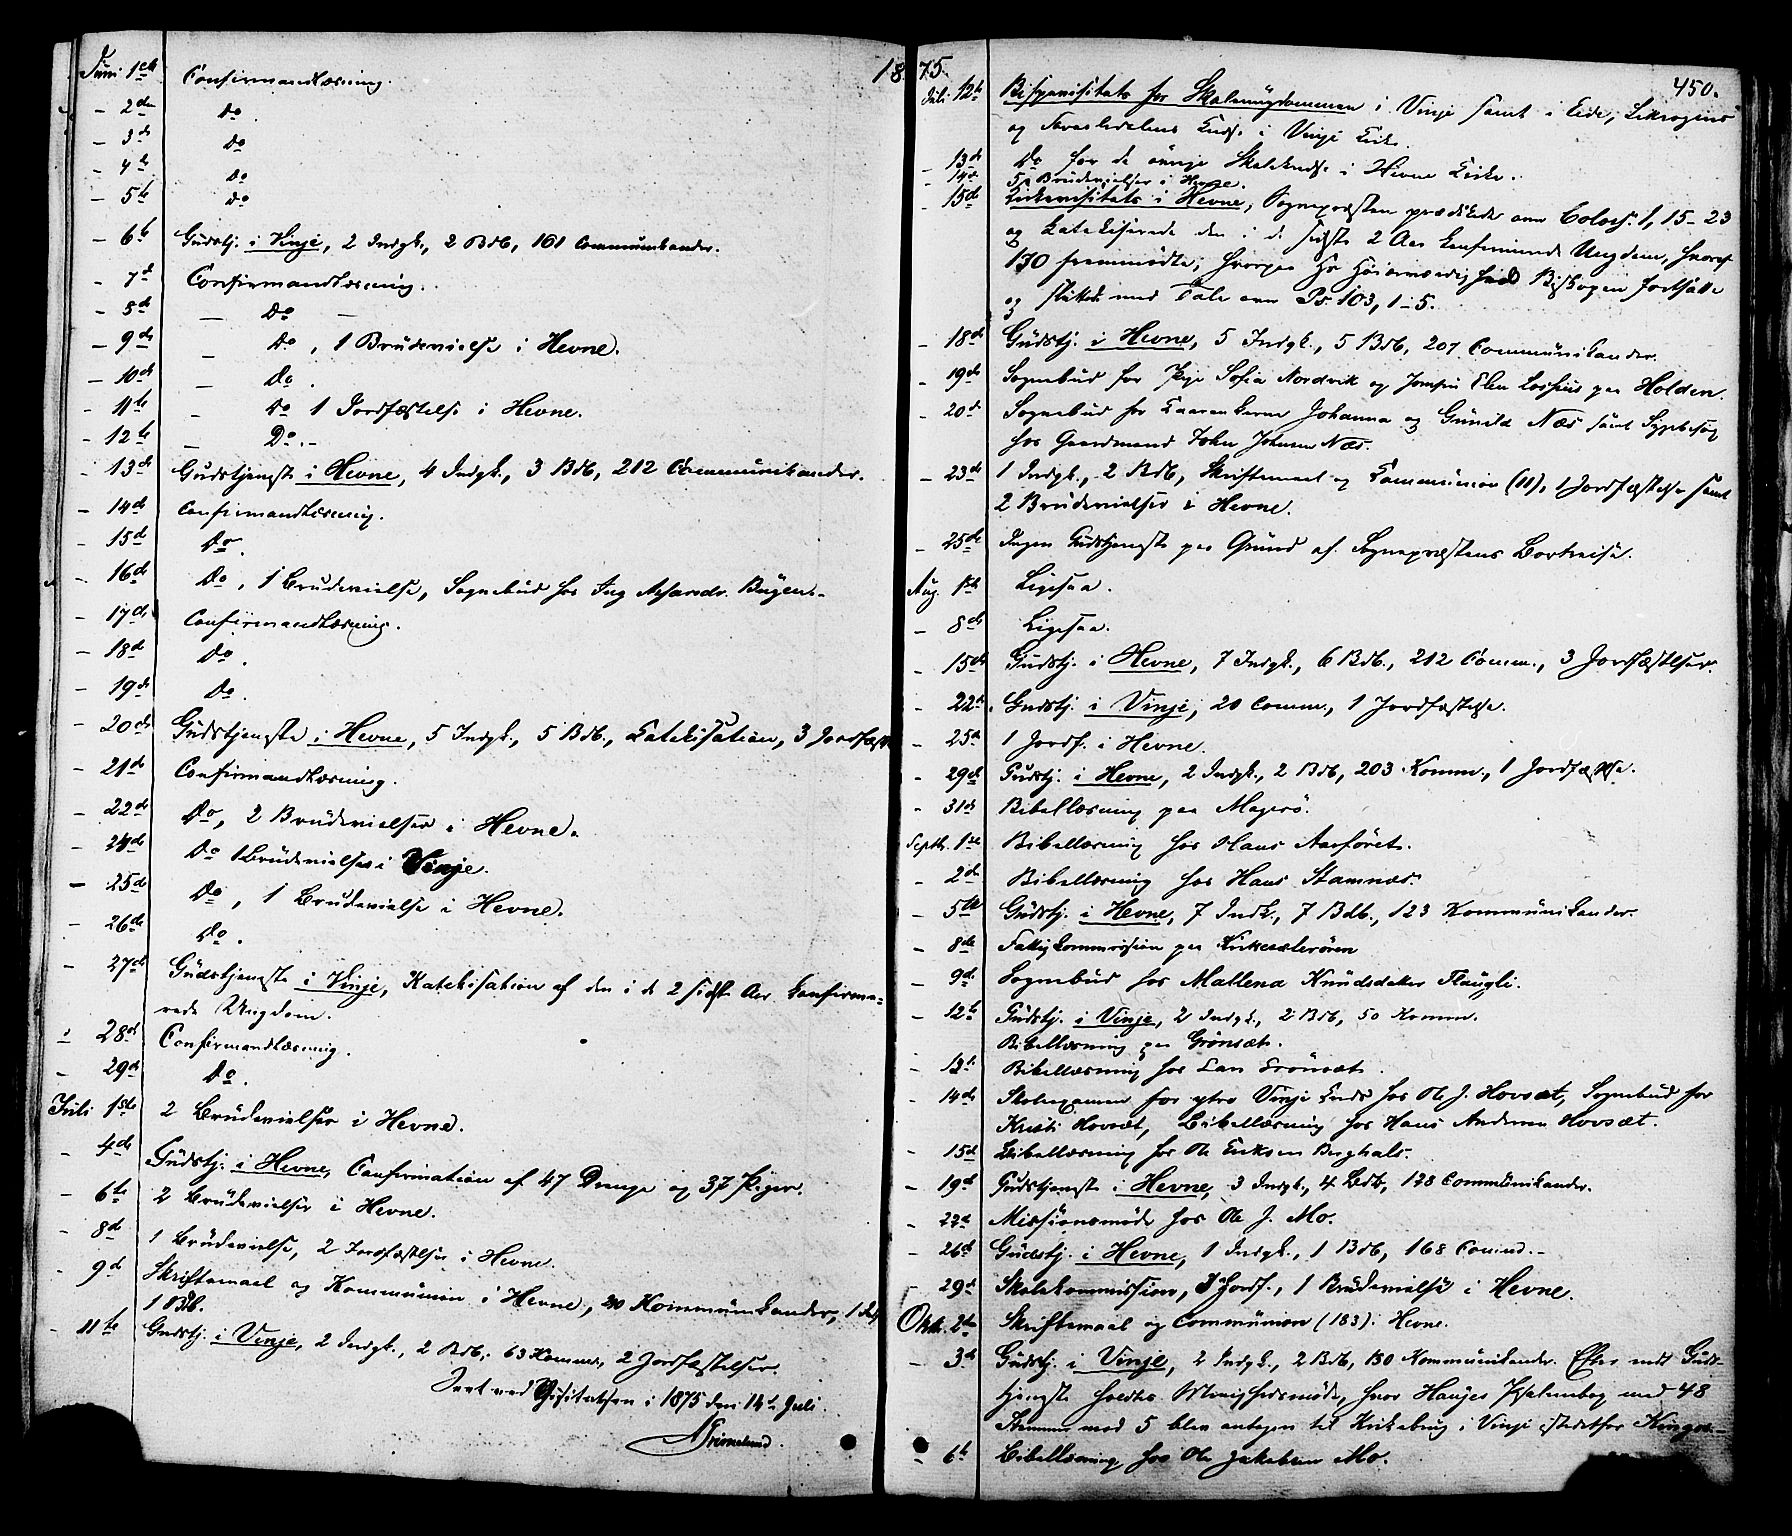 1875.
Juni 1ste Confirmandlæsning.
- 2den Do.
- 3de Do
- 4de Do
- 5te Do
- 6te Gudstj. i Vinje, 2 Indgk., 2 Bdb, 161 Communikander.
- 7de Confirmandlæsning.
- 8de - Do -
- 9de - Do, 1 Brudevielse i Hevne.
- 10de - Do.
- 11te - Do 1 Jordfæstelse i Hevne.
- 12te - Do.-
- 13de Gudstjeneste i Hevne, 4 Indgk., 3 Bdb, 212 Communikander.
- 14de Confirmandlæsning.
- 15de Do.
- 16de Do, 1 Brudevielse, Sognebud hos
- 17de Confirmandlæsning.
- 18de Do.
- 19de Do.
- 20de Gudstjeneste i Hevne, 5 Indgk., 5 Bdb., Katekisation, 3 Jordfæst
- 21de Confirmandlæsning.
- 22de Do, 2 Brudevielser i Hevne.
- 24de Do 1 Brudevielse i Vinje.
- 25de Do, 1 Brudevielse i Hevne.
- 26de Do.
- 27de Gudstjeneste i Vinje, Katekisation af den i de 2 sidste Aar konfirme-
rede Ungdom.
- 28de Confirmandlæsning.
- 29de Do.
Juli 1ste 2 Brudevielser i Hevne.
- 4de Gudstj. i Hevne, Confirmation af 47 Drenge og 37 Piger.
- 6te 2 Brudevielser i Hevne.
- 8de 1 Brudevielse, 2 Jordfæstelser i Hevne.
- 9de Skriftemaal og Kommunion i Hevne, 20 Kommunikander, 1 Indgk
1 Bdb.
- 11te Gudstj. i Vinje, 2 Indgk., 2 Bdb., 63 Kommu, 2 Jordfæstelser.
Seet ved Visitatsen i 1875 den 14de Juli.
Grimelund.
450.
Juli 12te Bispevisitats for Skoleungdommen i Vinje samt i Eide,
og Kreds i Vinje Kirke.
- 13de Do for de øvrige Skolekredse i Hevne Kirke.
- 14de 5 Brudevielser i Hevne.
- 15de Kirkevisitats i Hevne, Sognepræsten prædikede over Coloss. 1, 15-23
og katekiserede den i de sidste 2 Aar konfirmerede Ungdom, hvoraf
170 fremmødte; hvorpaa Hr Høiærværdighed Biskopen fortsatte
og sluttede med Tale over Ps. 103, 1-5.
- 18de Gudstj. i Hevne, 5 Indgk., 5 Bdb, 207 Communikander.
- 19de Sognebud for Pige Sofia Nordvik og Jomfru Elen Lossius paa Holden.
- 20de Sognebud for Johanna og Gunild Næs samt
hos Gaardmand John Johnsen Næs.
- 23de 1 Indgk., 2 Bdb, Skriftemaal og Kommunion (11), 1 Jordfæstelse samt
2 Brudevielser i Hevne.
- 25de Ingen Gudstjeneste paa Grund af Sognepræstens Bortreise.
Aug. 1ste Ligesaa.
- 8de Ligesaa.
- 15de Gudstj. i Hevne, 7 Indgk., 6 Bdb., 212 Comm., 3 Jordfæstelser.
- 22de Gudstj. i Vinje, 20 Comm., 1 Jordfæstelse.
- 25de 1 Jordf. i Hevne.
- 29de Gudstj. i Hevne, 2 Indgk., 2 Bdb, 203 Komm., 1 Jordfæstelse.
- 31de Bibellæsning paa Magerø.
Septbr. 1ste Bibellæsning hos Hans Aarførets.
- 2de Bibellæsning hos Hans Stamnæs.
- 5te Gudstj. i Hevne, 7 Indk., 7 Bdb., 123 Kommunikander.
- 8de Fattigkommission paa Kirkesæterøren
- 9de Sognebud hos Mallena Knudsdatter Flaugli.
- 12te Gudstj. i Vinje, 2 Indgk., 2 Bdb, 50 Komm.
Bibellæsning paa Grønsæt.
- 13de Bibellæsning hos Lars Grønsæt.
- 14de Skoleexamen for ytre Vinje Kreds hos Ole J. Hovsæt, Sognebud for
Kristi Hovsæt, Bibellæsning hos Hans Andersen Hovsæt.
- 15de Bibellæsning hos Ole Eriksen Berghals.
- 19de Gudstjeneste i Hevne, 3 Indgk., 4 Bdb, 128 Communikander.
- 22de Missionsmøde hos Ole J. Mo.
- 26de Gudstj. i Hevne, 1 Indgk., 1 Bdb, 168 Comm.-
- 29de Skolekommission, Jordf., 1 Brudevielse i Hevne.
Oktbr. 2den Skriftemaal og Communion (183) i Hevne.
- 3de Gudstj. i Vinje, 2 Indgk., 2 Bdb, 130 Kommunikander. Efter endt Guds-
tjeneste holdtes Menighedsmøde, hvor Hauges Psalmebog med 48
Stemmer mod 5 blev antagen til Kirkebrug i Vinje istedetfor Kingos.-
- 6te Bibellæsning hos Ole Jakobsen Mo.